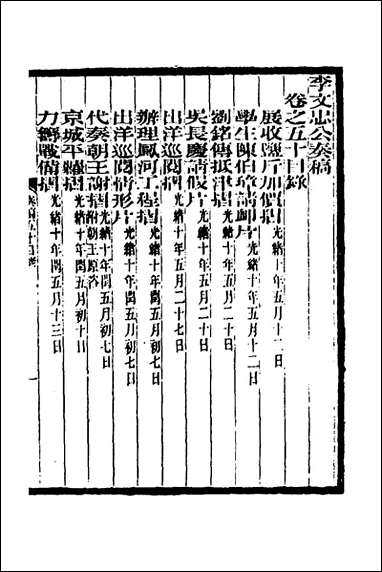 李文忠公奏稿
卷之五十目錄
展收陳斤加價摺 光緒十年五月十二日
學生陳伯璋請卹片 光緒十年五月十二日
劉銘傳抵津摺 光緒十年五月二十日
吳長慶請假片 光緒十年五月二十日
出洋巡閱摺 光緒十年五月二十七日
辦理鳳河工程摺 光緒十年閏五月初七日
出洋巡閱情形片 光緒十年閏五月初七日
代奏朝王謝摺 附朝王原咨 光緒十年閏五月初七日
京城平糶摺 光緒十年閏五月初十日
力籌戰備摺 光緒十年閏五月十三日